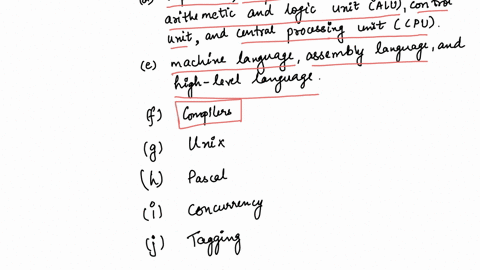 arithmetic and logic unit (ALU), control
unit, and central processing unit (CPU).
(e) machine language, assembly language, and
high-level language.
(f) Compilers
(g) Unix
(h) Pascal
(i) Concurrency
(j) Tagging